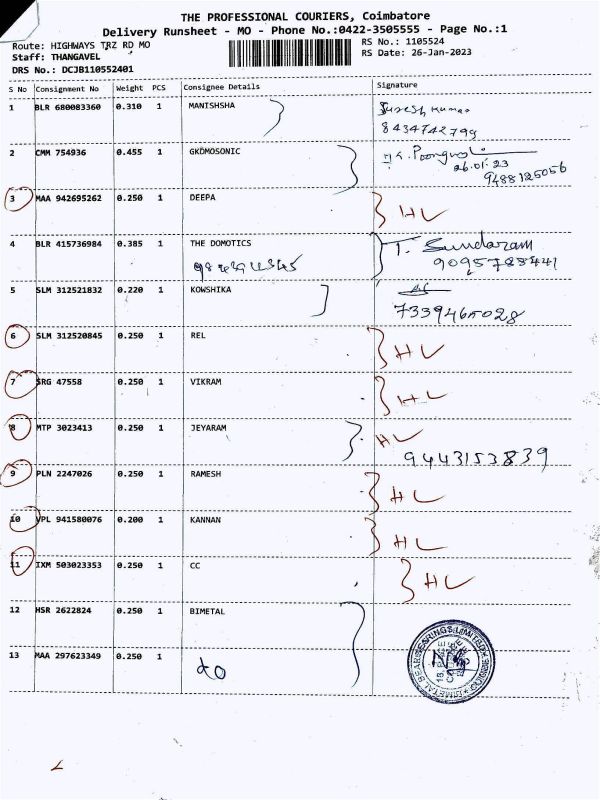 THE PROFESSIONAL COURIERS, Coimbatore
Delivery Runsheet - MO - Phone No.:0422-3505555 - Page No.:1
Route: HIGHWAYS TRZ RD MO
RS No.: 1105524
Staff: THANGAVEL
RS Date: 26-Jan-2023
DRS No.: DCJB110552401
S No Consignment No Weight PCS Consignee Details Signature
1 BLR 680083360 0.310 1 MANISHSHA Suresh Kumar
8434742799
2 CMM 754936 0.455 1 GKDMOSONIC
26.01.23
9488125056
3 MAA 942695262 0.250 1 DEEPA HL
4 BLR 415736984 0.385 1 THE DOMOTICS T. Sundaram
9095788441
5 SLM 312521832 0.220 1 KOWSHIKA
7339465028
6 SLM 312520845 0.250 1 REL HL
7 SRG 47558 0.250 1 VIKRAM HL
8 MTP 3023413 0.250 1 JEYARAM HL
9443153839
9 PLN 2247026 0.250 1 RAMESH HL
10 VPL 941580076 0.200 1 KANNAN HL
11 IXM 503023353 0.250 1 CC HL
12 HSR 2622824 0.250 1 BIMETAL
13 MAA 297623349 0.250 1 do
BIMETAL BEARINGS LIMITED